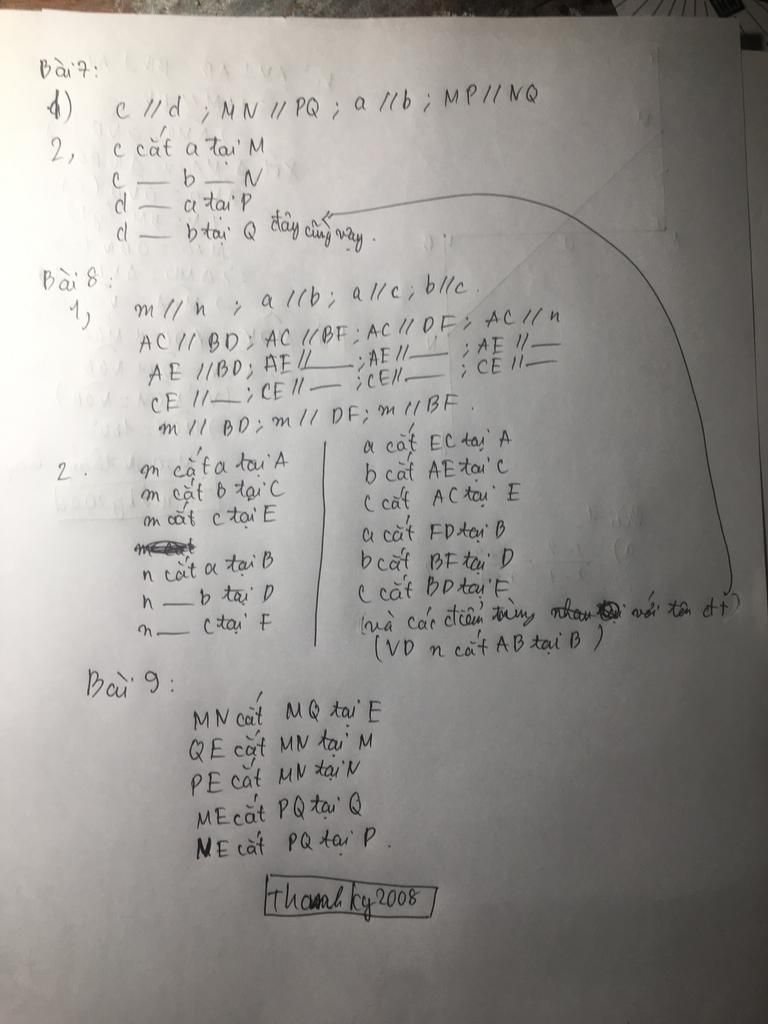 Bài 7:
1) c // d ; MN // PQ ; a // b ; MP // NQ
2, c cắt a tại M
c — b — N
d — a tại P
d — b tại Q đây cũng vậy.
Bài 8:
1, m // n ; a // b ; a // c ; b // c.
AC // BD ; AC // BF ; AC // DF ; AC // n
AE // BD ; AE // — ; AE // — ; AE // —
CE // — ; CE // — ; CE // — ; CE // —
m // BD ; m // DF ; m // BF.
2. m cắt a tại A
m cắt b tại C
m cắt c tại E
n cắt a tại B
n — b tại D
n — c tại F
a cắt EC tại A
b cắt AE tại C
c cắt AC tại E
a cắt FD tại B
b cắt BF tại D
c cắt BD tại F
(và các điểm trùng nhau với tên đt)
(VD n cắt AB tại B)
Bài 9:
MN cắt MQ tại E
QE cắt MN tại M
PE cắt MN tại N
ME cắt PQ tại Q
NE cắt PQ tại P.
Thanh Ky 2008